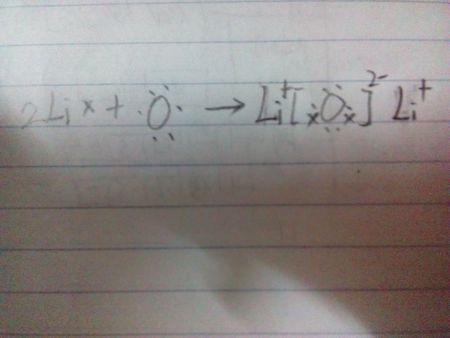 2Li × + ·Ö: → Li⁺[×Ö×]²⁻ Li⁺